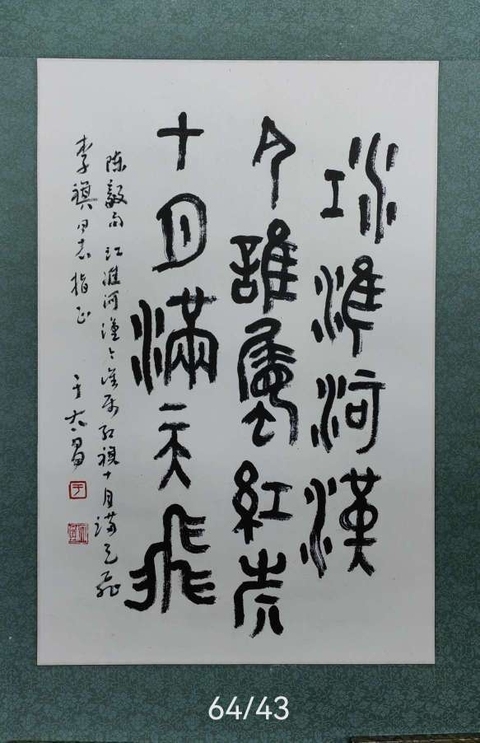 江淮河漢
今誰屬紅旗
十月滿天飛
陳毅句 江淮河漢今誰属红旗十月满天飛
李祺同志指正 于太昌
于
64/43